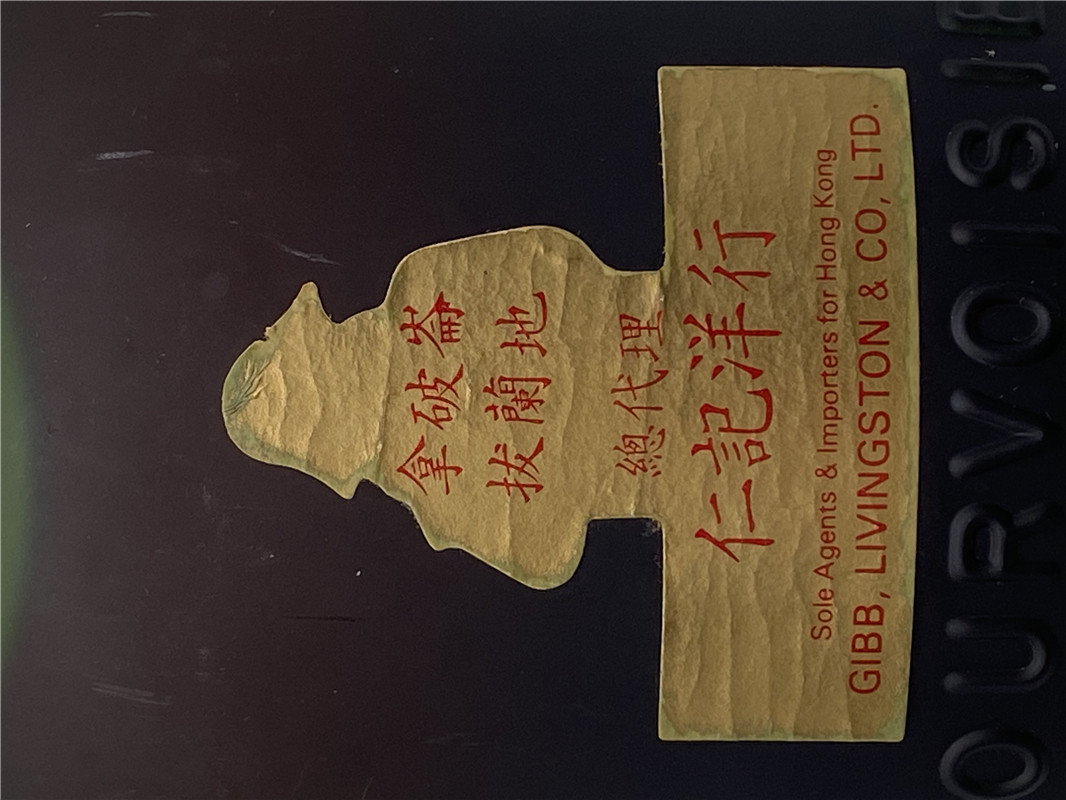 拿破崙
拔蘭地
總代理
仁記洋行
Sole Agents & Importers for Hong Kong
GIBB, LIVINGSTON & CO, LTD.
OURVOISIE